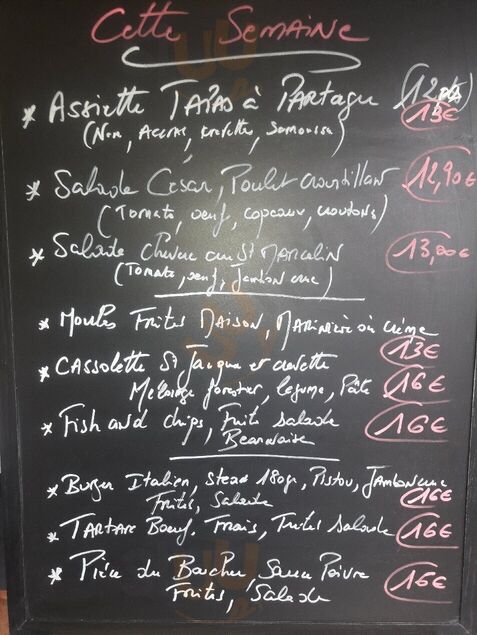 Cette Semaine
* Assiette Tapas à Partager (12 pts)
13€
(Nem, Accras, crevette, Samoussa)
* Salade César, Poulet croustillant 12,90€
(Tomate, oeuf, copeaux, croutons)
* Salade chèvre au St Marcelin 13,00€
(Tomate, oeuf, Jambon cru)
* Moules Frites Maison, Marinière ou crème
13€
* Cassolette St Jacques et crevette
Mélange forestier, légume, Pâte 16€
* Fish and chips, Frite Salade 16€
Bearnaise
* Burger Italien, Steak 180gr, Pistou, Jambon cru
Frites, Salade 16€
* Tartare Boeuf, Frais, Frites Salade 16€
* Pièce du Boucher, Sauce Poivre 16€
Frites, Salade